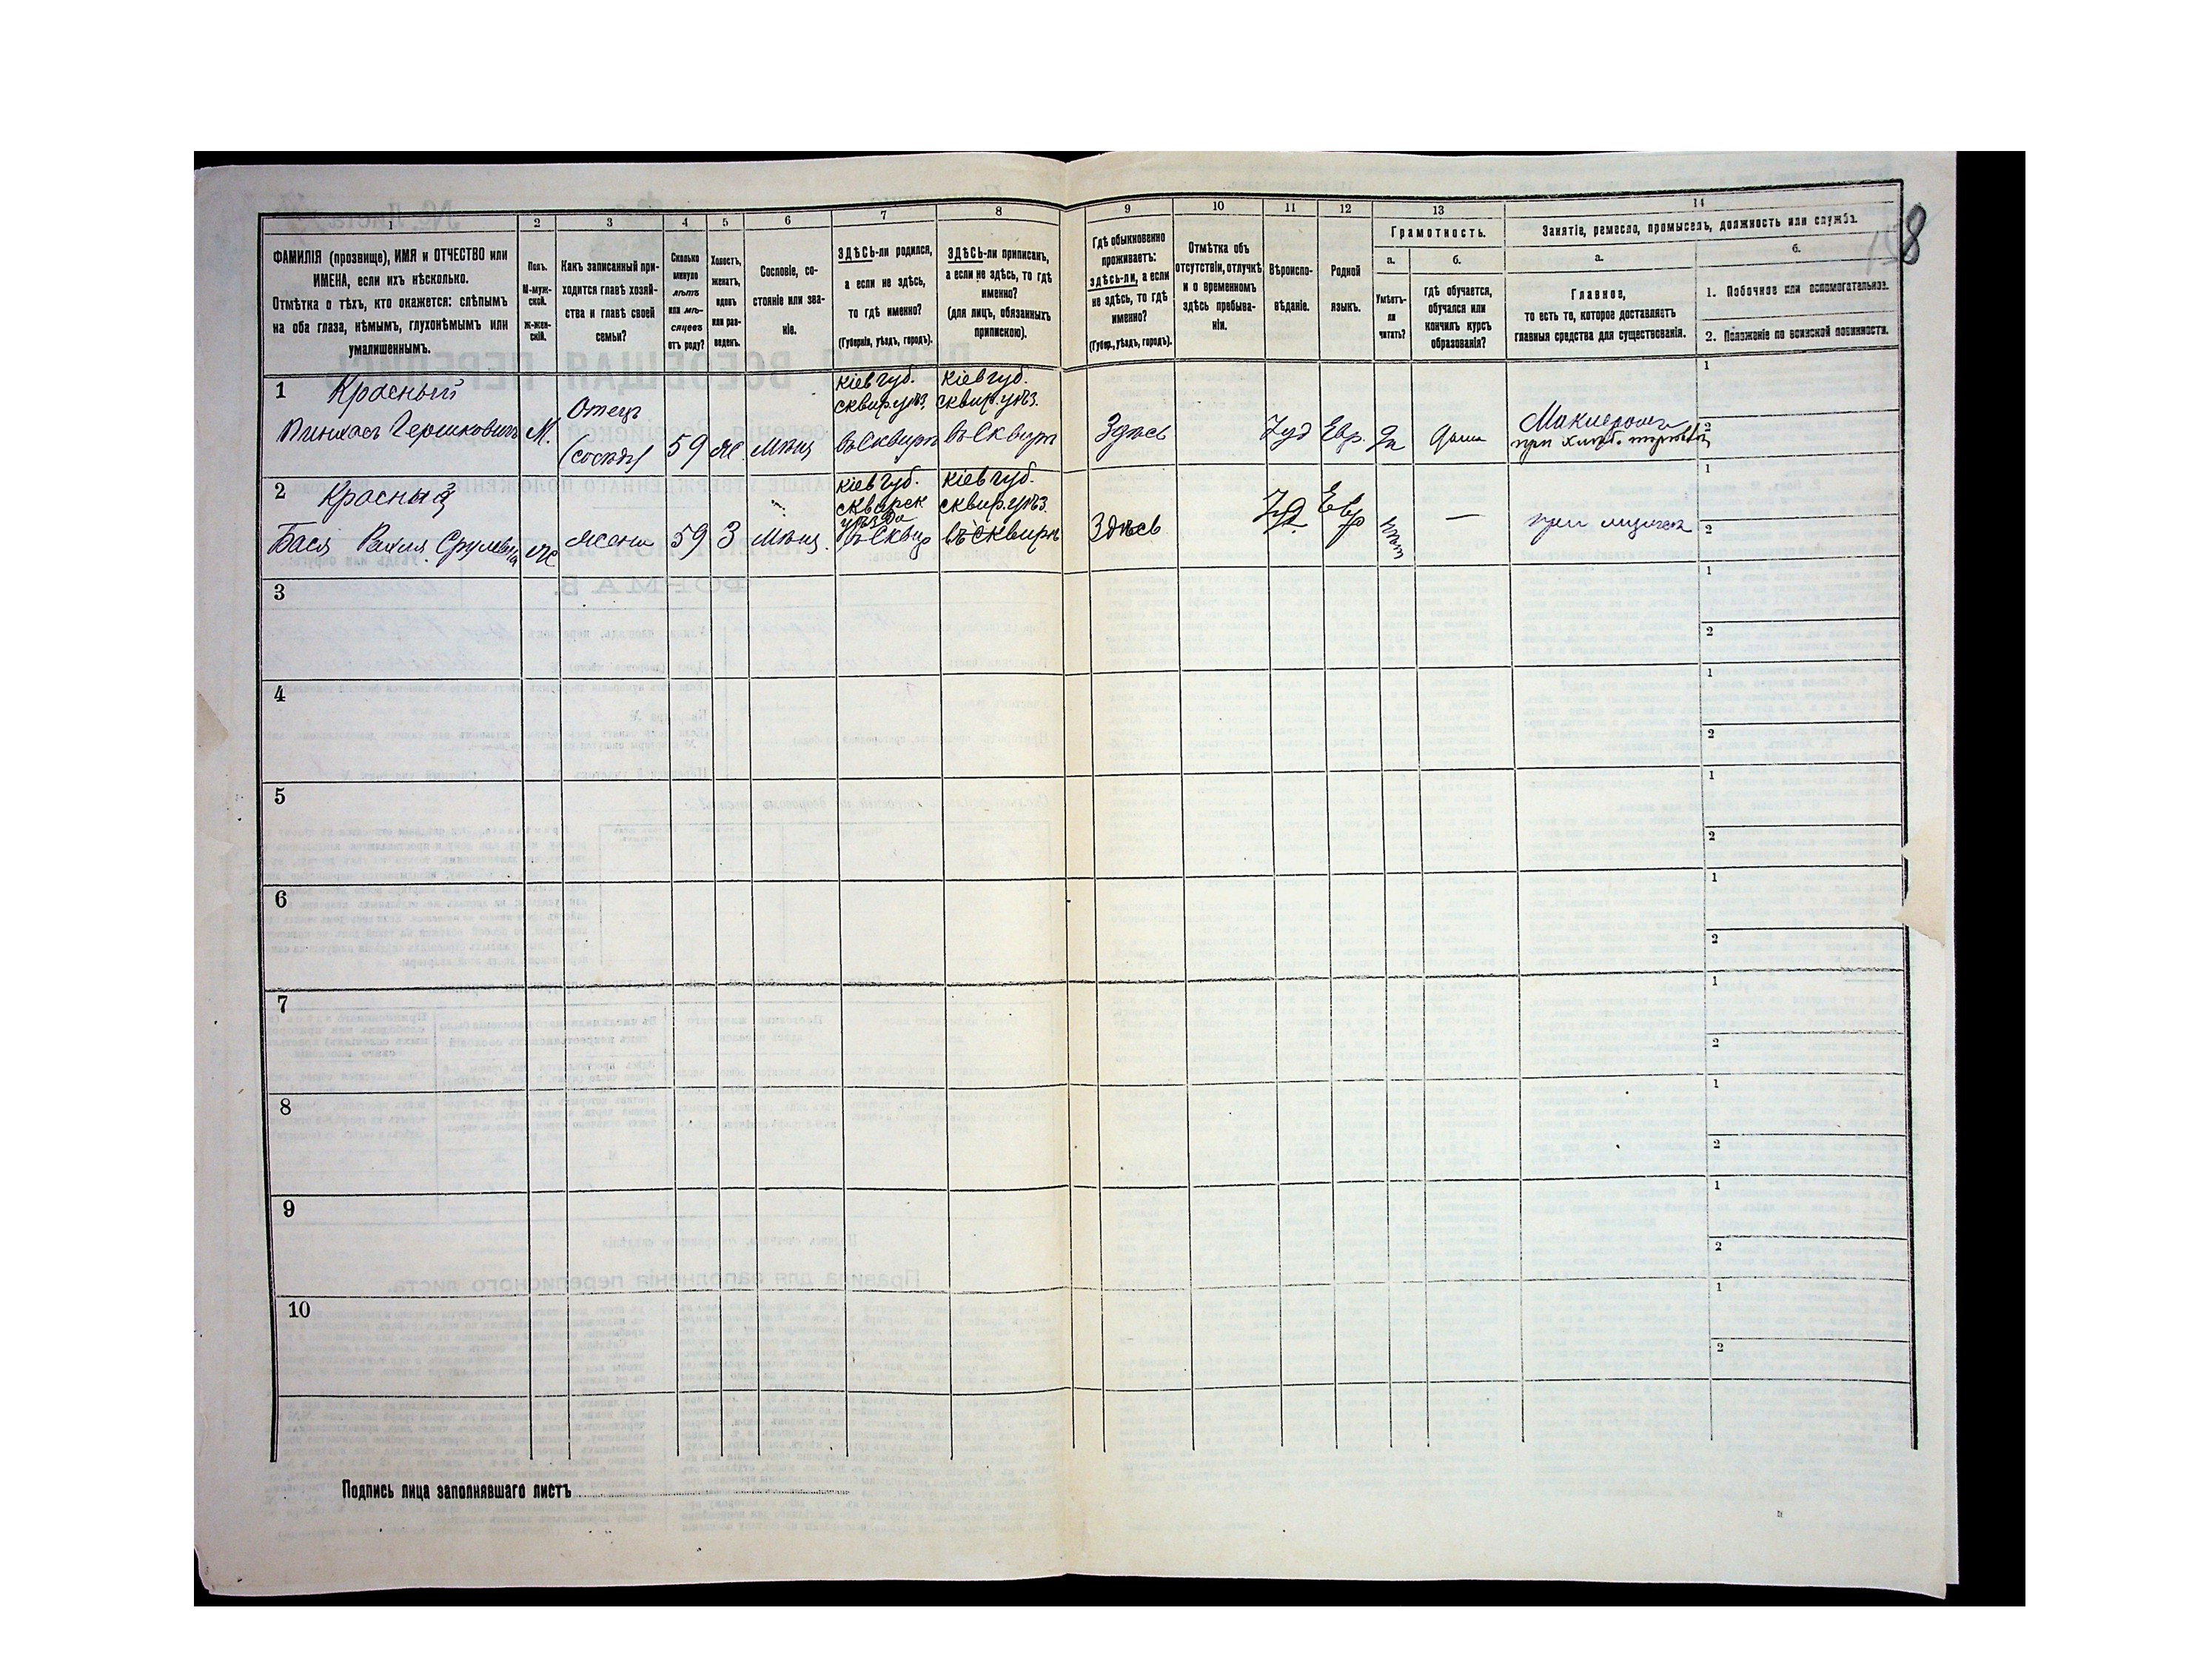 1
2
3
4
5
6
7
8
9
10
11
12
13
14
ФАМИЛІЯ (прозвище), ИМЯ и ОТЧЕСТВО или
ИМЕНА, если ихъ нѣсколько.
Отмѣтка о тѣхъ, кто окажется: слѣпымъ
на оба глаза, нѣмымъ, глухонѣмымъ или
умалишеннымъ.
Полъ.
М-муж-
ской.
Ж-жен-
скій.
Какъ записанный при-
ходится главѣ хозяй-
ства и главѣ своей
семьи?
Сколько
минуло
лѣтъ
или мѣ-
сяцевъ
отъ роду?
Холостъ,
женатъ,
вдовъ
или раз-
веденъ.
Сословіе, со-
стояніе или зва-
ніе.
ЗДѢСЬ-ли родился,
а если не здѣсь,
то гдѣ именно?
(Губернія, уѣздъ, городъ).
ЗДѢСЬ-ли приписанъ,
а если не здѣсь, то гдѣ
именно?
(для лицъ, обязанныхъ
припискою).
Гдѣ обыкновенно
проживаетъ:
здѣсь-ли, а если
не здѣсь, то гдѣ
именно?
(Губер., уѣздъ, городъ).
Отмѣтка объ
отсутствіи, отлучкѣ
и о временномъ
здѣсь пребыва-
ніи.
Вѣроиспо-
вѣданіе.
Родной
языкъ.
Грамотность.
а.
Умѣетъ-
ли
читать?
б.
гдѣ обучается,
обучался или
кончилъ курсъ
образованія?
Занятіе, ремесло, промыселъ, должность или служба.
а.
Главное,
то есть то, которое доставляетъ
главныя средства для существованія.
б.
1. Побочное или вспомогательное.
2. Положеніе по воинской повинности.
8
1 Красный
Пинхасъ Гершковичъ
М.
Отецъ
(сосѣдъ)
59
ж.
Мѣщ
Кіев губ.
сквир. уѣз.
въ Сквирѣ
Кіев губ.
сквир. уѣз.
въ Сквирѣ
Здѣсь
Іуд
Евр.
Да
дома
1
2
2 Красный
Бася Рахля Срулевна
ж
жена
59
З
Мѣщ.
Кіев губ.
уѣзда
Кіев губ.
сквир. уѣз.
въ Сквирѣ
Здѣсь
Іуд.
Евр
нѣт
—
при мужѣ
1
2
3
1
2
4
1
2
5
1
2
6
1
2
7
1
2
8
1
2
9
1
2
10
1
2
Подпись лица заполнявшаго листъ